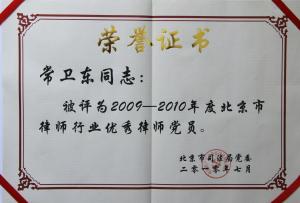 荣誉证书
常卫东同志：
被评为2009—2010年度北京市
律师行业优秀律师党员。
北京市司法局党委
二零一零年七月